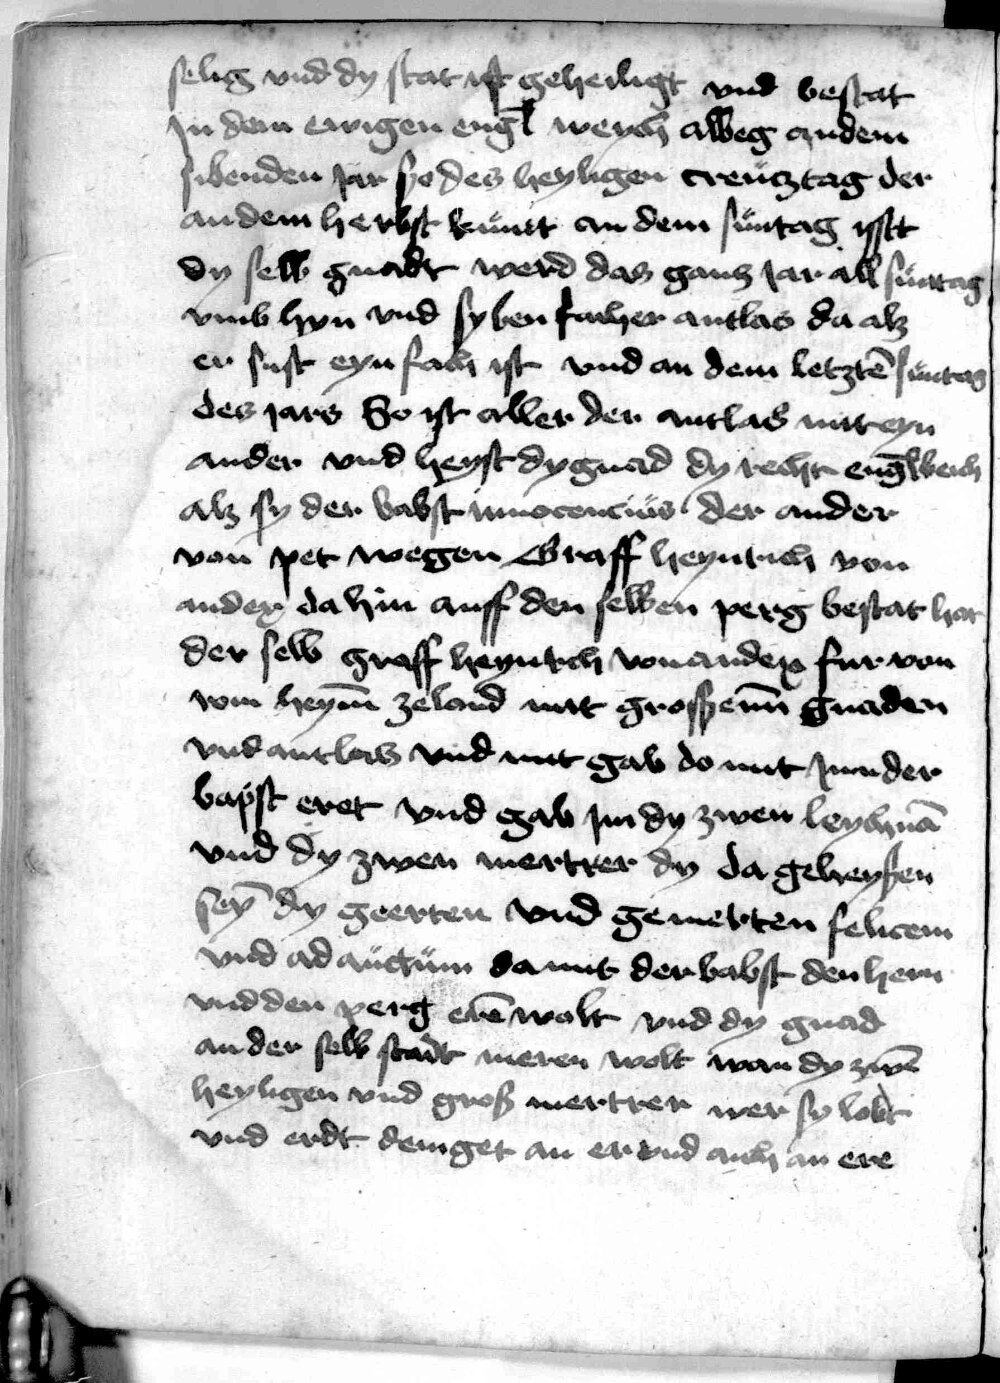 selig vnd dy stat ist geheiligt vnd bestat
In dem ewigen engl̄ weych alweg andem
sibenden Jar so des heyligen creücztag der
andem herbst kümt an dem süntag isstt
dy selb gnadt werd das gancz Jar all süntag
vmb hyn vnd syben facher antlas da alz
er sust eynfach ist vnd an dem letztē süntag
des jars So ist aller der antlas mit eyn
ander vnd heyst dy gnad dy recht engl̄weich
alz sy der babst innocencius der ander
von pet wegen Graff heynrich von
andex da hin auff den selben perg bestat hat
der selb graff heynrich von andex fur von
rom heym̄ zeland mit grossenn̄ gnaden
vnd antlas vnd mit gab do mit Jm der
bapst eret vnd gab Jm dy zwen leychnā
vnd dy zwen mertrer dy da geheysen
seȳ dy geerten vnd gemerten felicem
vnd ad auctüm damit der babst den hern
vnd den perg erē wolt vnd dy gnad
an der selb stadt meren wolt wan dy zwē
heyligen vnd gros mertrer wer sy lobt
vnd erdt dem get an er vnd auch an ere